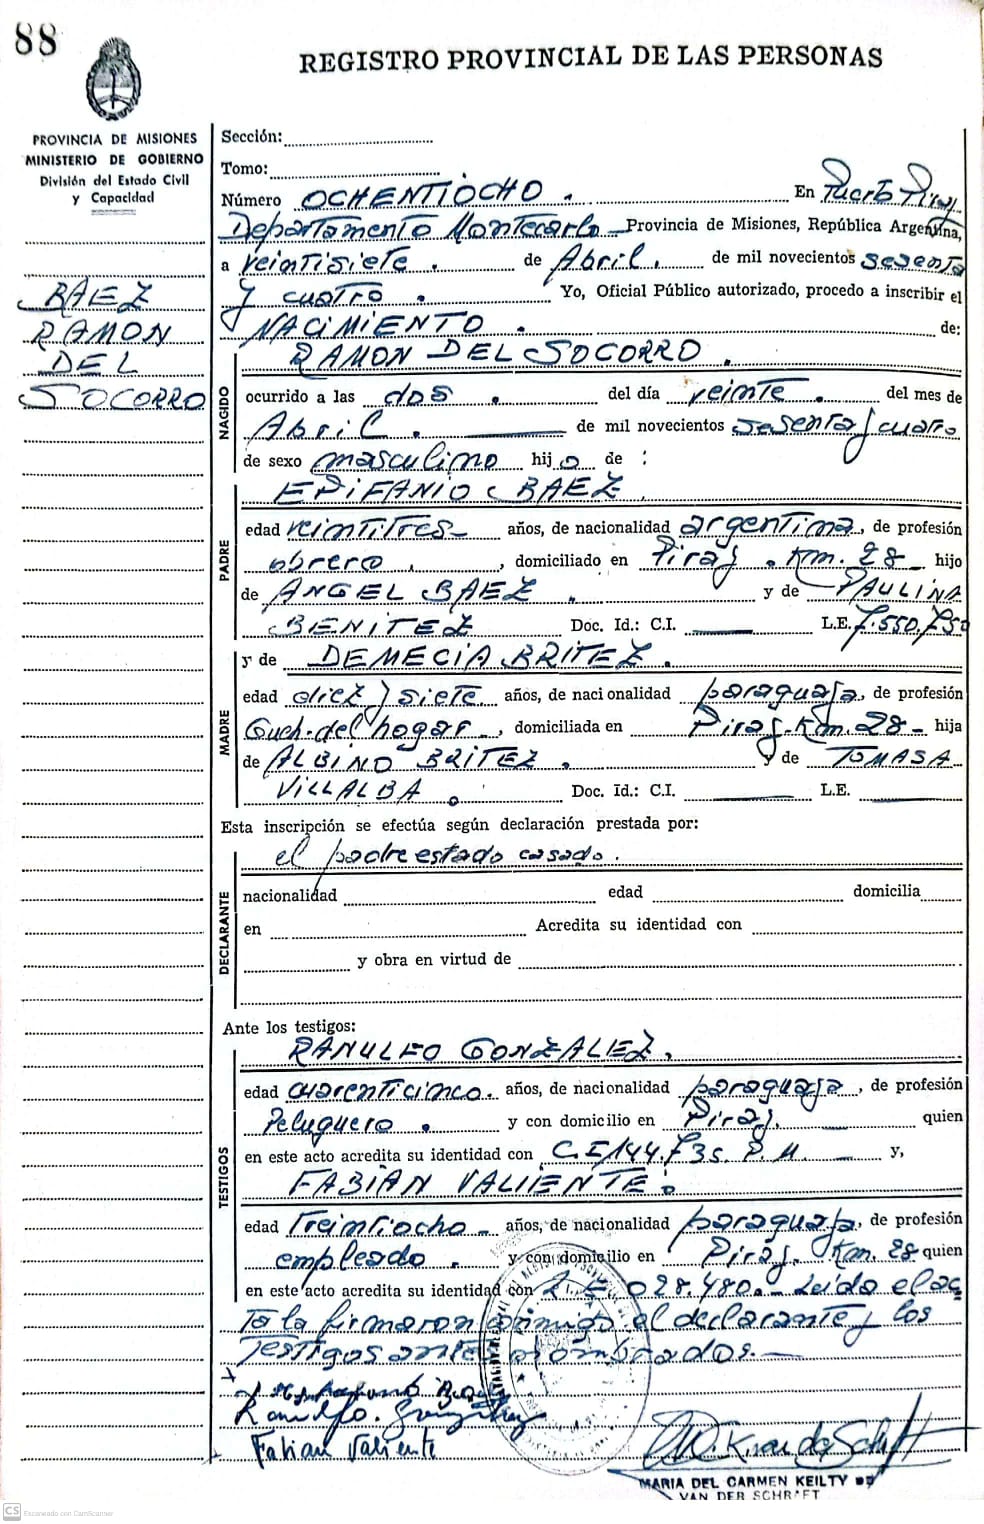 88
REGISTRO PROVINCIAL DE LAS PERSONAS
PROVINCIA DE MISIONES
MINISTERIO DE GOBIERNO
División del Estado Civil
y Capacidad
BAEZ
RAMON
DEL
SOCORRO
Sección:
Tomo:
Número OCHENTIOCHO. En Puerto Piray
Departamento Montecarlo Provincia de Misiones, República Argentina,
a veintisiete. de Abril. de mil novecientos sesenta
y cuatro. Yo, Oficial Público autorizado, procedo a inscribir el
NACIMIENTO. de:
NACIDO
RAMON DEL SOCORRO.
ocurrido a las dos. del día veinte. del mes de
Abril. de mil novecientos sesenta y cuatro
de sexo masculino hijo de:
PADRE
EPIFANIO BAEZ.
edad veintitres años, de nacionalidad argentina, de profesión
obrero, domiciliado en Piray. Km. 28 hijo
de ANGEL BAEZ. y de PAULINA
BENITEZ Doc. Id.: C.I. L.E. 7.550.750
MADRE
y de DEMECIA BRITEZ.
edad diez y siete años, de nacionalidad paraguaya, de profesión
Queh. del hogar, domiciliada en Piray-Km. 28- hija
de ALBINO BRITEZ. y de TOMASA
VILLALBA. Doc. Id.: C.I. L.E.
Esta inscripción se efectúa según declaración prestada por:
DECLARANTE
el padre estado casado.
nacionalidad edad domicilia
en Acredita su identidad con
y obra en virtud de
Ante los testigos:
TESTIGOS
RANULFO GONZALEZ.
edad cuarenticinco. años, de nacionalidad paraguaya, de profesión
Peluquero. y con domicilio en Piray. quien
en este acto acredita su identidad con C.I 144.735. P. M. y,
FABIAN VALIENTE.
edad treintiocho años, de nacionalidad paraguaya, de profesión
empleado. y con domicilio en Piray. Km. 28 quien
en este acto acredita su identidad con 028.480.- Leido el ac
ta la firmaron conmigo el declarante y los
testigos ante nombrados.-
Ranulfo. González
Fabian Valiente
MARIA DEL CARMEN KEILTY DE
VAN DER SCHRAFT
CS Escaneado con CamScanner